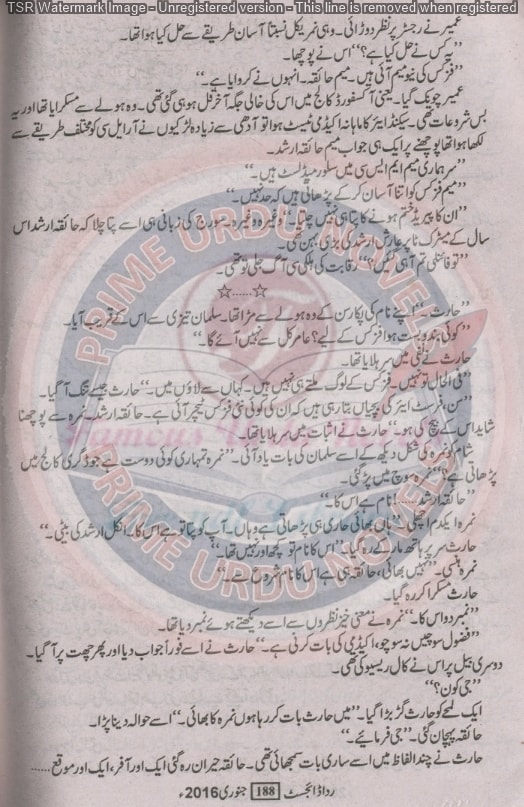 TSR Watermark Image - Unregistered version - This line is removed when registered
عمیر نے رجسٹر پر نظر دوڑائی۔ وہی نمیریکل نسبتاً آسان طریقے سے حل کیا ہوا تھا۔
”یہ کس نے حل کیا ہے؟“ اس نے پوچھا۔
”فزکس کی نیو میم آئی ہیں۔ میم حائقہ۔ انہوں نے کروایا ہے۔“
عمیر چونک گیا۔ یعنی آکسفورڈ کالج میں اس کی خالی جگہ آخر فل ہو ہی گئی تھی۔ وہ ہولے سے مسکرایا تھا اور یہ
بس شروعات تھی۔ سیکنڈ ایئر کا ماہانہ اکیڈمی ٹیسٹ ہوا تو آدھی سے زیادہ لڑکیوں نے آر ایل سی کو مختلف طریقے سے
لکھا ہوا تھا پوچھنے پر ایک ہی جواب میم حائقہ ارشد۔
”سر ہماری میم ایم ایس سی میں سلور میڈلسٹ ہیں۔“
”میم فزکس کو اتنا آسان کر کے پڑھاتی ہیں کہ حد نہیں۔“
”ان کا پیریڈ ختم ہونے کا پتا ہی نہیں چلتا۔“ وغیرہ وغیرہ۔ سورج کی زبانی ہی اسے پتا چلا کہ حائقہ ارشد اس
سال کے میٹرک ٹاپر عارش ارشد کی بڑی بہن تھی۔
”تو فائنلی تم آ ہی گئیں؟“ رقابت کی ہلکی سی آگ جلی تو تھی۔
☆......☆
”حارث۔“ اپنے نام کی پکار سن کے وہ ہولے سے مڑا تھا۔ سلمان تیزی سے اس کے قریب آیا۔
”کوئی بندوبست ہوا فزکس کے لیے؟ عامر کل سے نہیں آئے گا۔“
حارث نے نفی میں سر ہلایا تھا۔
”فی الحال تو نہیں۔ فزکس کے لوگ ملتے ہی نہیں ہیں۔ کہاں سے لاؤں میں۔“ حارث جیسے تنگ آ گیا۔
”سن، فرسٹ ایئر کی بچیاں بتا رہی ہیں کہ ان کی کوئی نئی فزکس ٹیچر آئی ہے۔ حائقہ ارشد۔ نمرہ سے پوچھنا
شاید اس کے بیچ کی ہو۔“ حارث نے اثبات میں سر ہلایا تھا۔
شام کو نمرہ کی شکل دیکھ کے اسے سلمان کی بات یاد آئی۔ ”نمرہ تمہاری کوئی دوست ہے جو ڈگری کالج میں
پڑھاتی ہے؟“ نمرہ سوچ میں پڑ گئی۔
”حائقہ ارشد......! نام ہے اس کا۔“
نمرہ ایکدم اچھلی۔ ”ہاں بھائی حاری ہی پڑھاتی ہے وہاں۔ آپ کو پتا تو ہے اس کا۔ انکل ارشد کی بیٹی۔“
حارث سر پر ہاتھ مار کے رہ گیا۔ ”اس کا نام تو کچھ اور نہیں تھا۔“
نمرہ ہنسی۔ ”نہیں بھائی، حائقہ ہی ہے اس کا نام شروع سے۔“
حارث مسکرا کر رہ گیا۔
”نمبر دو اس کا۔“ نمرہ نے معنی خیز نظروں سے اسے دیکھتے ہوئے نمبر دیا تھا۔
”فضول سوچیں نہ سوچو، اکیڈمی کی بات کرنی ہے۔“ حارث نے اسے فوراً جواب دیا اور پھر چھت پر آ گیا۔
دوسری بیل پر اس نے کال ریسیو کی تھی۔
”جی کون؟“
ایک لمحے کو حارث گڑبڑا گیا۔ ”میں حارث بات کر رہا ہوں نمرہ کا بھائی۔“ اسے حوالہ دینا پڑا۔
حائقہ پہچان گئی۔ ”جی فرمائیے۔“
حارث نے چند الفاظ میں اسے ساری بات سمجھائی تھی۔ حائقہ حیران رہ گئی ایک اور آفر، ایک اور موقع......
ردا ڈائجسٹ 188 جنوری 2016ء
PRIME URDU NOVELS
PRIME URDU NOVELS